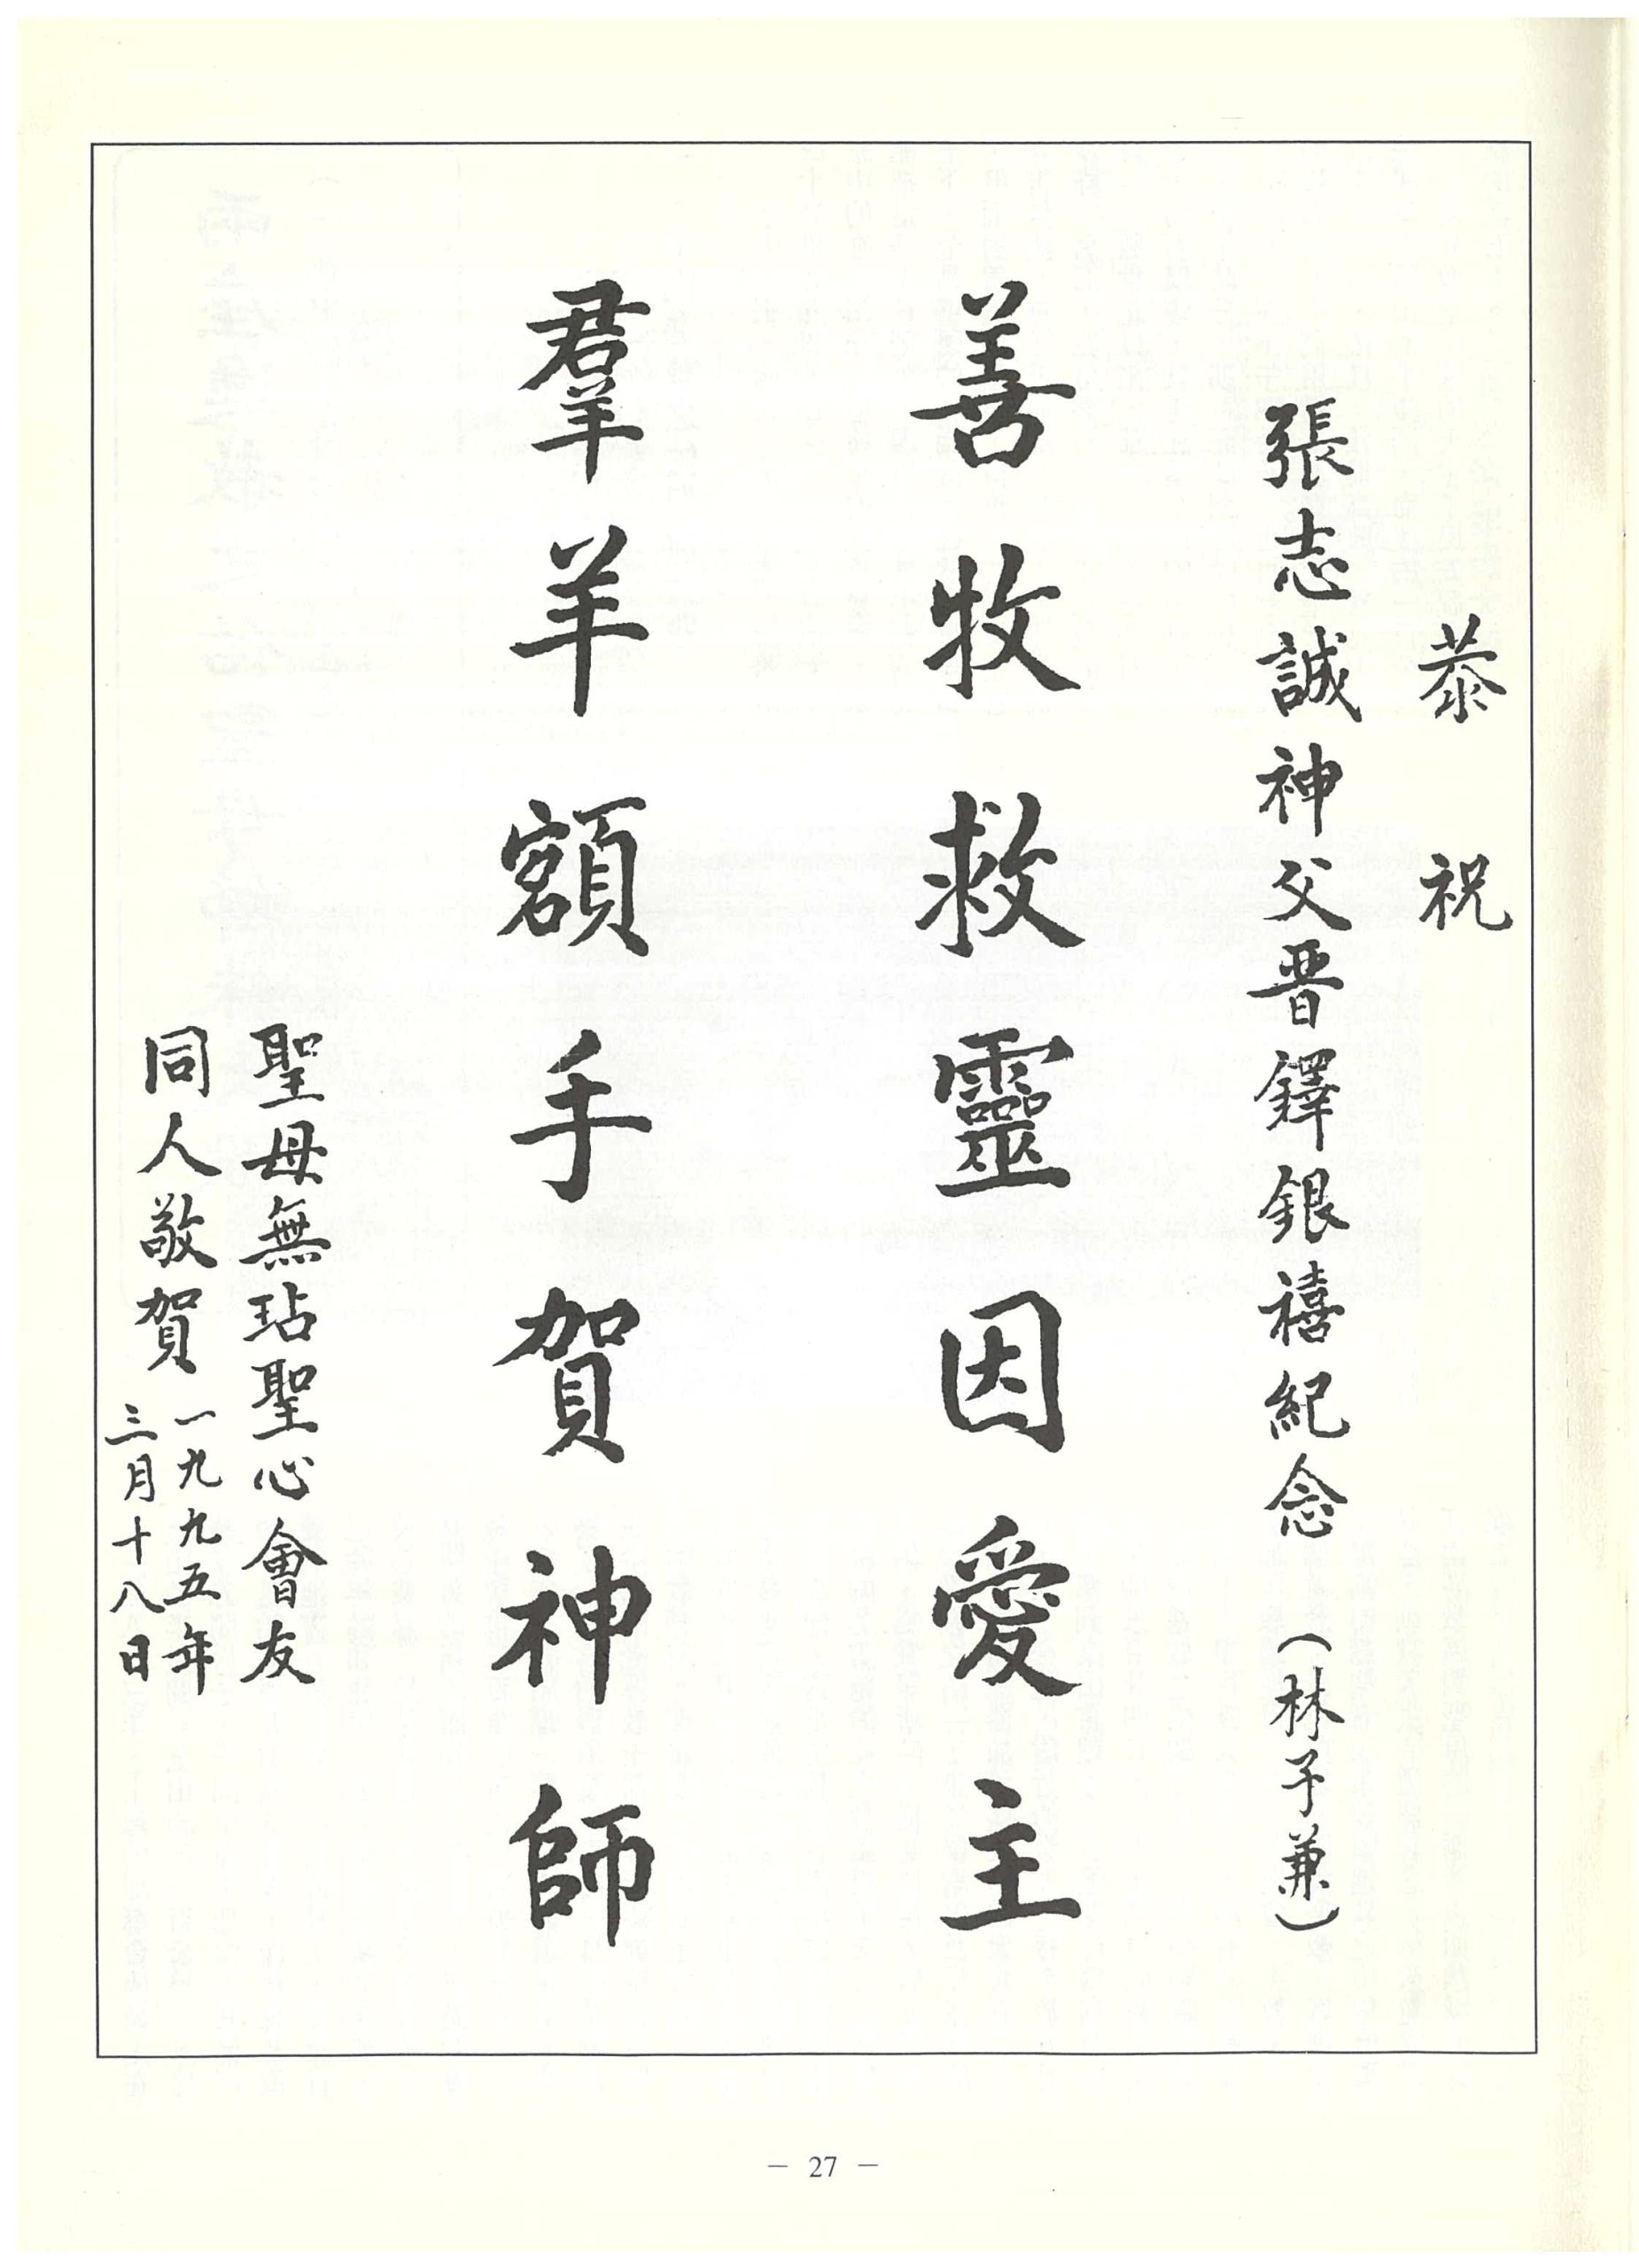 恭祝
張志誠神父晋鐸銀禧紀念（林予兼）
善牧救靈因愛主
羣羊額手賀神師
聖母無玷聖心會友
同人敬賀
一九九五年
三月十八日
— 27 —